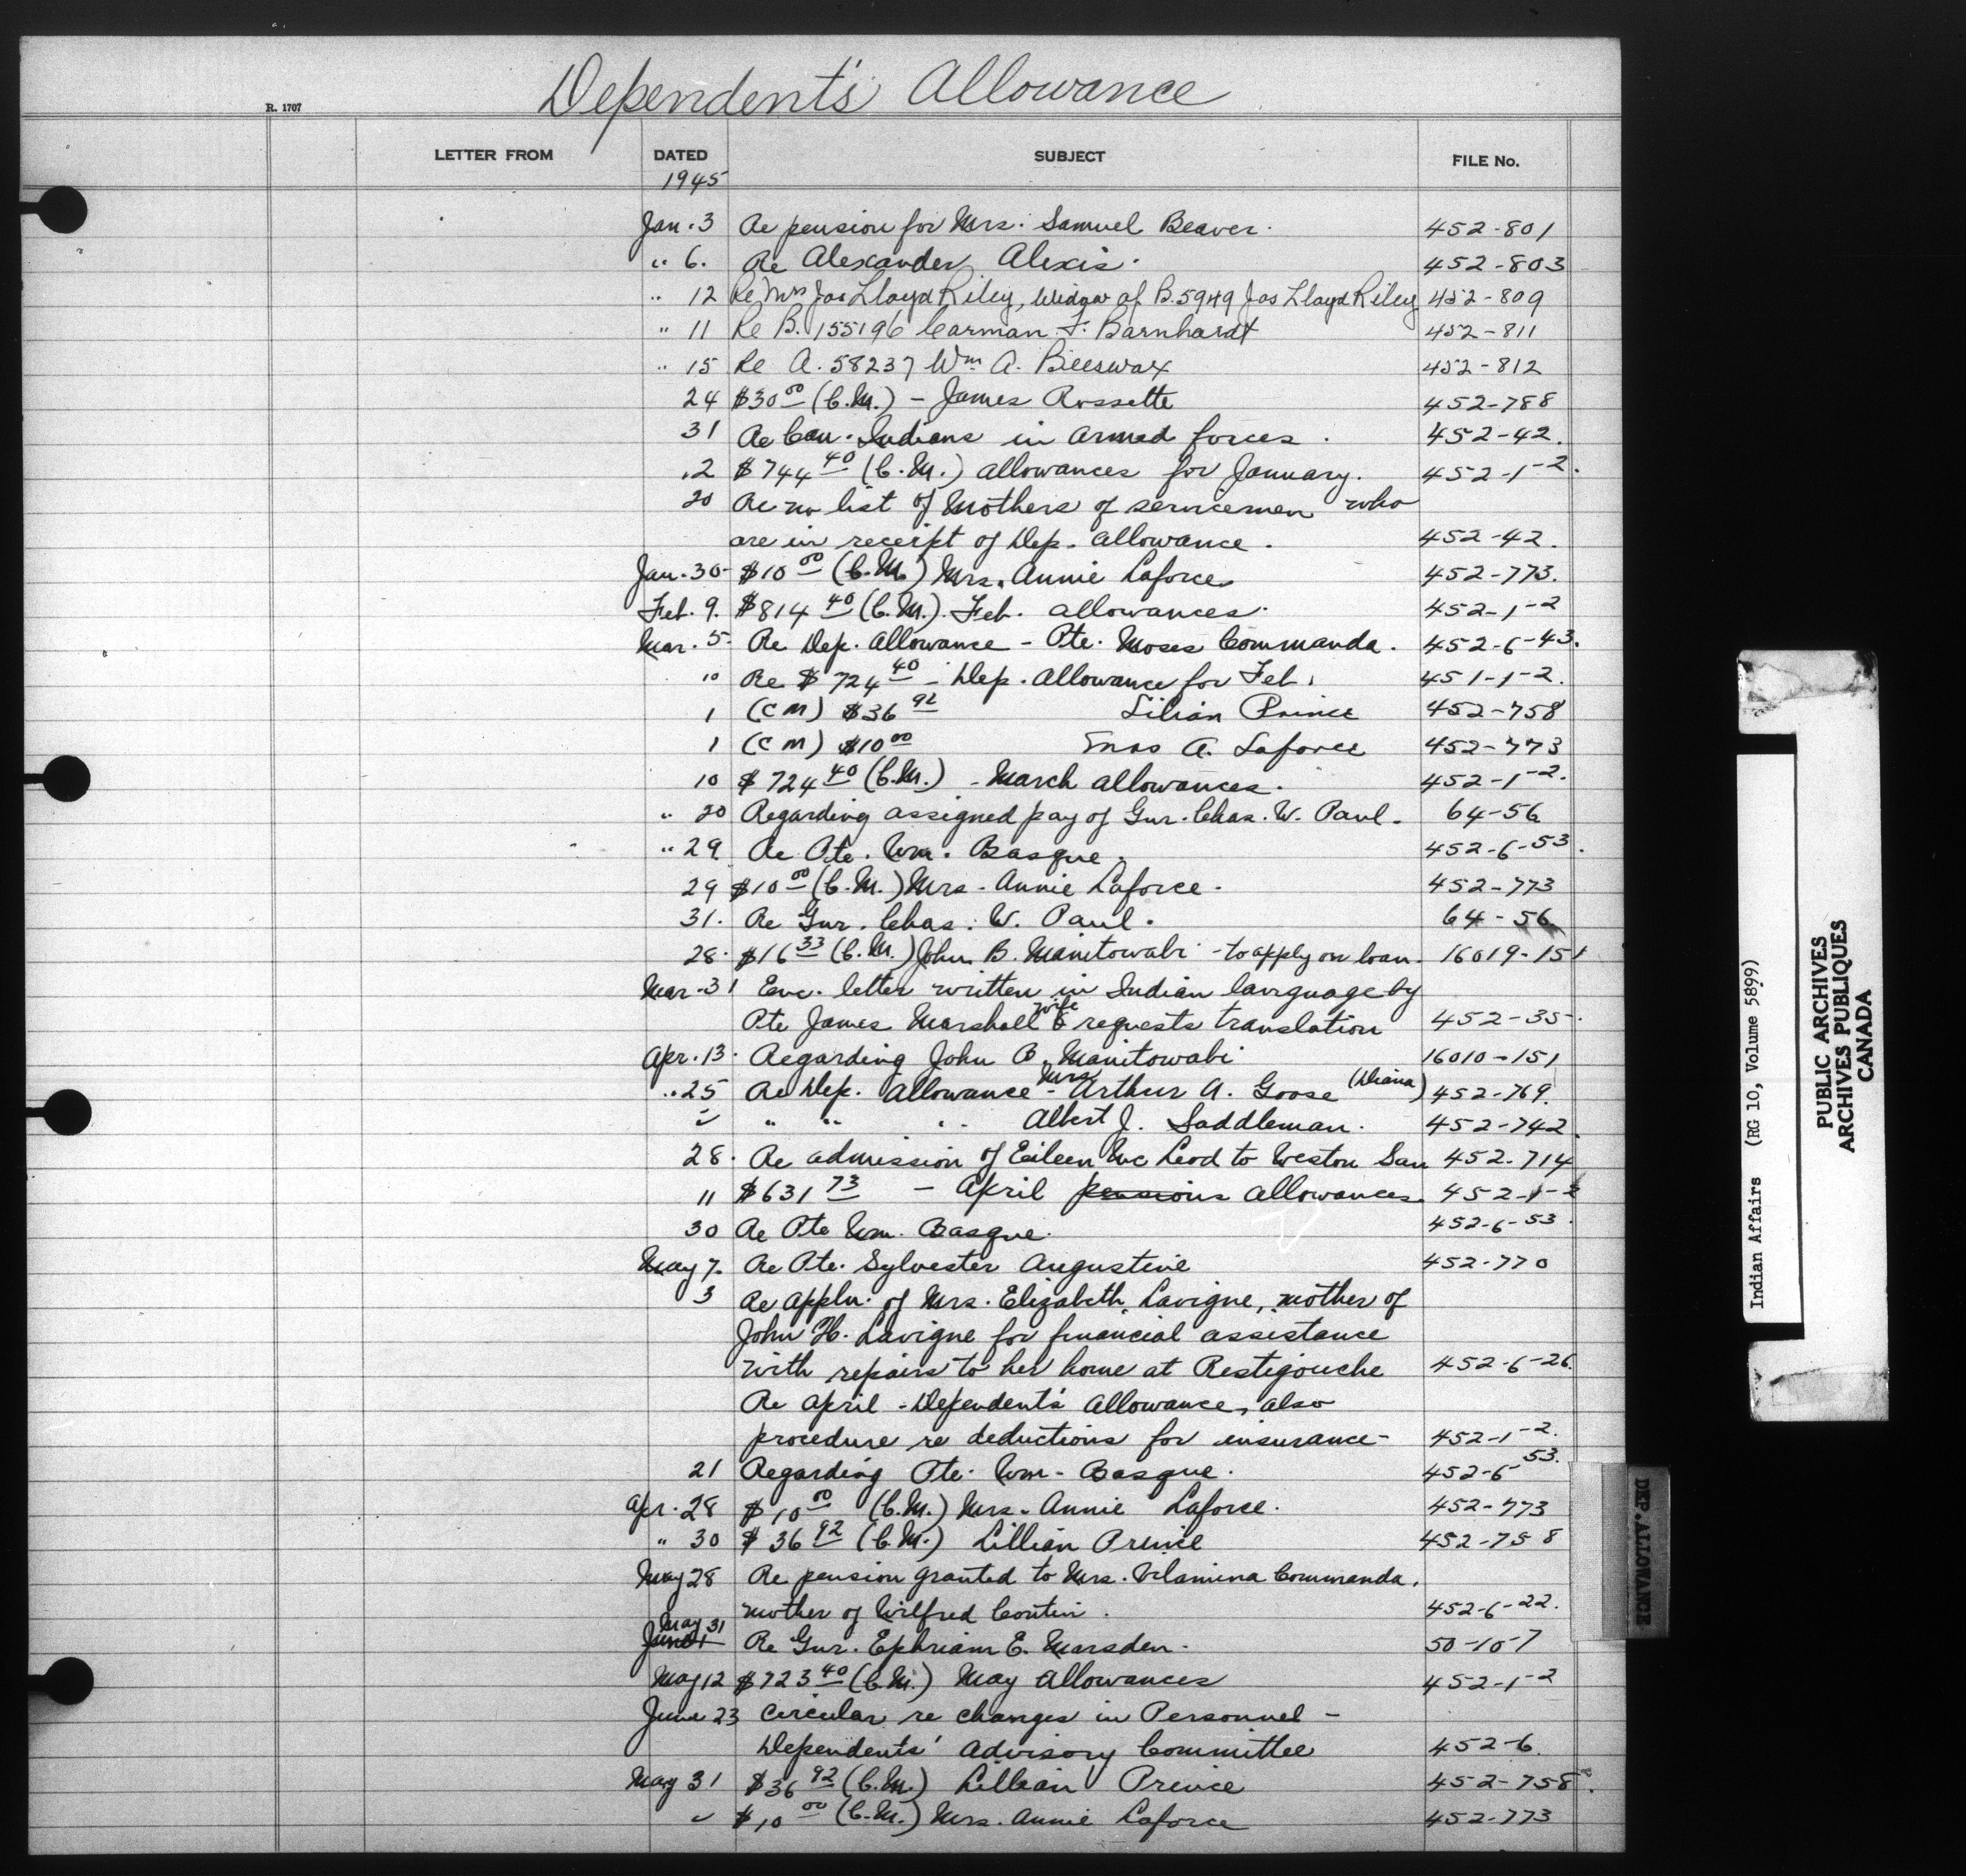 Dependent's Allowance
R. 1707
LETTER FROM DATED SUBJECT FILE No.
1945
Jan. 3 Re pension for Mrs. Samuel Beaver. 452-801
" 6. Re Alexander Alexis. 452-803
" 12 Re Mrs Jas Lloyd Riley, Widow of B.5949 Jas Lloyd Riley 452-809
" 11 Re B. 155196 Carman F. Barnhardt 452-811
" 15 Re A. 58237 Wm A. Beeswax 452-812
24 $30 00 (C.M.) - James Rossette 452-788
31 Re Can. Indians in armed forces. 452-42.
.2 $744 40 (C.M.) allowances for January. 452-1-2.
20 Re no list of Mothers of servicemen who
are in receipt of Dep. Allowance. 452-42.
Jan. 30 $10 00 (C.M.) Mrs. Annie Laforce 452-773.
Feb. 9. $814 40 (C.M.). Feb. allowances. 452-1-2
Mar. 5. Re Dep. Allowance - Pte. Moses Commanda. 452-6-43.
10 Re $724 40 - Dep. Allowance for Feb. 451-1-2.
1 (CM) $36 92 Lilian Prince 452-758
1 (CM) $10 00 Mrs A. Laforce 452-773
10 $724 40 (C.M.) - March allowances. 452-1-2.
" 20 Regarding assigned pay of Gnr. Chas. W. Paul. 64-56
" 29 Re Pte. Wm. Basque. 452-6-53.
29 $10 00 (C.M.) Mrs. Annie Laforce. 452-773
31. Re Gnr. Chas. W. Paul. 64-56
28. $16 33 (C.M.) John B. Manitowabi - to apply on loan. 16019-151
Mar. 31 Enc. letter written in Indian language by
Pte James Marshall wife & requests translation 452-35.
Apr. 13. Regarding John B. Manitowabi 16010-151
" 25 Re Dep. Allowance - Mrs Arthur A. Goose (Diana) 452-769.
" " " " Albert J. Saddleman. 452-742.
28. Re admission of Eileen Mc Leod to Weston San 452-714
11 $631 73 - April pensions allowances. 452-1-2
30 Re Pte Wm. Basque. 452-6-53.
May 7. Re Pte. Sylvester Augustine 452-770
3 Re appln. of Mrs. Elizabeth Lavigne, mother of
John H. Lavigne for financial assistance
with repairs to her home at Restigouche 452-6-26.
Re April - Dependent's Allowance, also
procedure re deductions for insurance - 452-1-2.
21 Regarding Pte. Wm. Basque. 452-6-53.
Apr. 28 $10 00 (C.M.) Mrs. Annie Laforce. 452-773
" 30 $36 92 (C.M.) Lillian Prince 452-758
May 28 Re pension granted to Mrs. Vilamina Commanda,
mother of Wilfred Contin. 452-6-22.
May 31
June 1 Re Gnr. Ephriam E. Marsden. 50-10-7
May 12 $723 40 (C.M.) May Allowances 452-1-2
June 23 Circular re changes in Personnel -
Dependents' Advisory Committee 452-6.
May 31 $36 92 (C.M.) Lillian Prince 452-758.
" $10 00 (C.M.) Mrs. Annie Laforce 452-773
DEP. ALLOWANCE
Indian Affairs (RG 10, Volume 5899)
PUBLIC ARCHIVES
ARCHIVES PUBLIQUES
CANADA